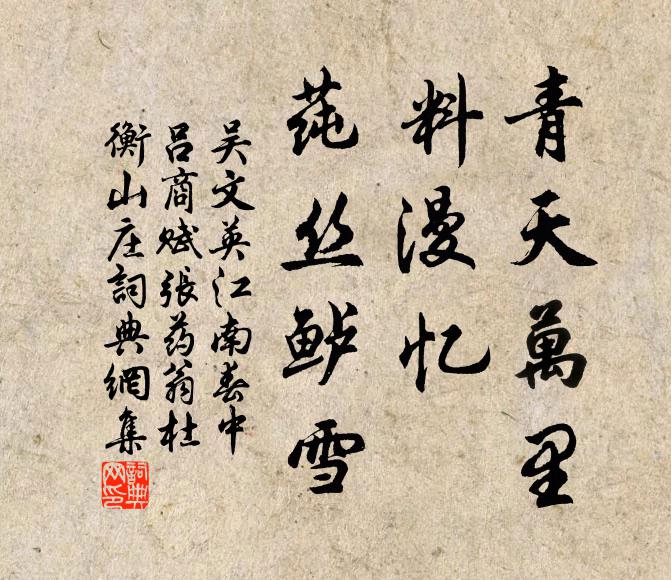 青天萬里
料漫忆
莼丝鲈雪
吴文英江南春中
吕商赋張药翁杜
衡山庄詞典網集
詞典网印